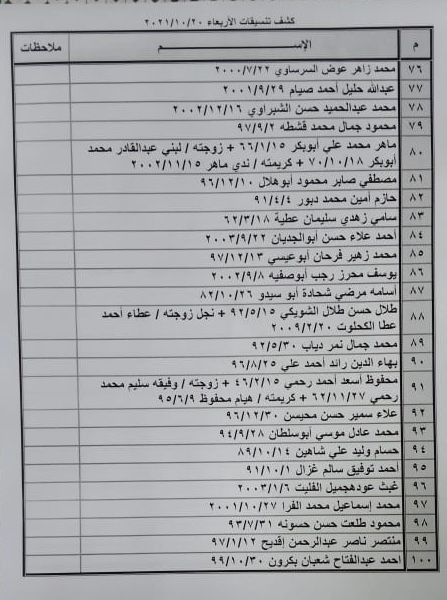 كشف تنسيقات الأربعاء ٢٠٢١/١٠/٢٠
م الإســـــم ملاحظات
٧٦ محمد زاهر عوض السرساوي ٢٠٠٠/٧/٢٢
٧٧ عبدالله خليل أحمد صيام ٢٠٠١/٩/٢٩
٧٨ محمد عبدالحميد حسن الشبراوي ٢٠٠٢/١٢/١٦
٧٩ محمود جمال محمد قشطه ٩٧/٩/٢
٨٠ ماهر محمد علي أبوبكر ٦٦/١/١٥ + زوجته / لبني عبدالقادر محمد
أبوبكر ٧٠/١٠/١٨ + كريمته / ندي ماهر ٢٠٠٢/١١/١٥
٨١ مصطفي صابر محمود أبوهلال ٩٦/١٢/١٠
٨٢ حازم أمين محمد دبور ٩١/٤/٤
٨٣ سامي زهدي سليمان عطية ٦٢/٣/١٨
٨٤ أحمد علاء حسن أبوالجديان ٢٠٠٣/٩/٢٢
٨٥ محمد زهير فرحان أبوعيسي ٩٧/١٢/١٣
٨٦ يوسف محرز رجب أبوصفيه ٢٠٠٢/٩/٨
٨٧ أسامه مرضي شحادة أبو سيدو ٨٢/١٠/٢٦
٨٨ طلال حسن طلال الشويكي ٩٢/٥/١٥ + نجل زوجته / عطاء أحمد
عطا الكحلوت ٢٠٠٩/٢/٢٠
٨٩ محمد جمال نمر دياب ٩٢/٥/٣٠
٩٠ بهاء الدين رائد أحمد علي ٩٦/٨/٢٥
٩١ محفوظ أسعد أحمد رحمي ٤٦/٢/١٥ + زوجته / وفيقه سليم محمد
رحمي ٦٢/١١/٢٧ + كريمته / هيام محفوظ ٩٥/٦/٩
٩٢ علاء سمير حسن محيسن ٩٦/١٢/٣٠
٩٣ محمد عادل موسي أبوسلطان ٩٤/٩/٢٨
٩٤ حسام وليد علي شاهين ٨٩/١٠/١٤
٩٥ أحمد توفيق سالم غزال ٩١/١٠/١
٩٦ غيث عودهجميل الفليت ٢٠٠٣/١/٦
٩٧ محمد إسماعيل محمد الفرا ٢٠٠١/١٠/٢٧
٩٨ محمود طلعت حسن حسونه ٩٣/٧/٣١
٩٩ منتصر ناصر عبدالرحمن إقديح ٩٧/١/١٢
١٠٠ أحمد عبدالفتاح شعبان بكرون ٩٩/١٠/٣٠